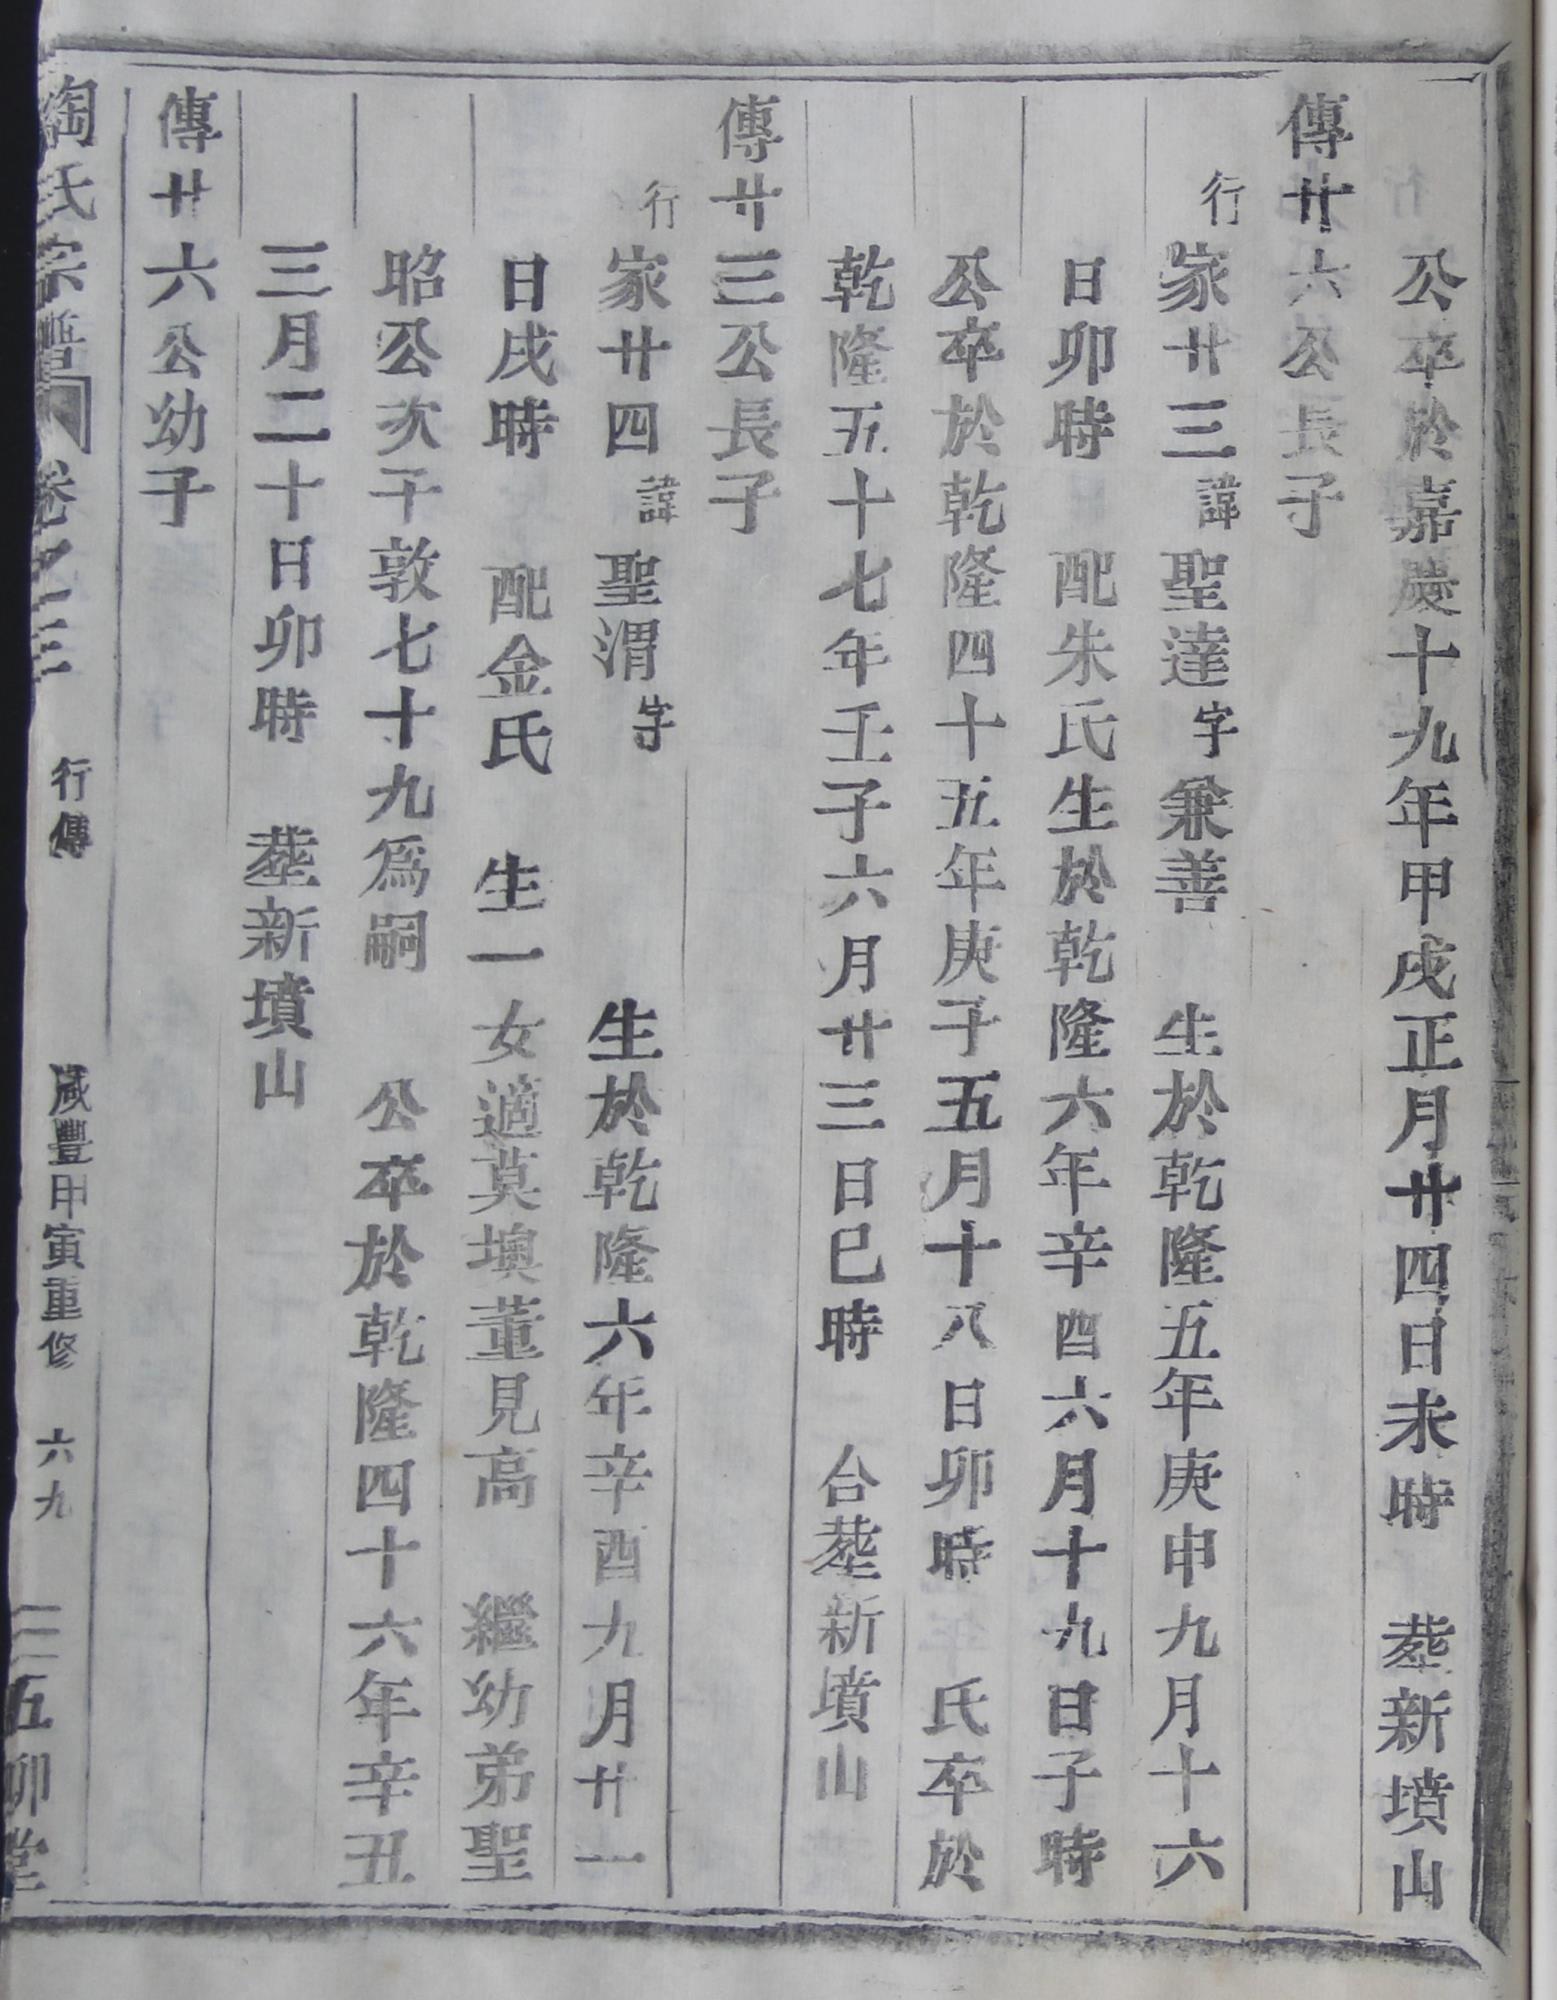 公卒於嘉慶十九年甲戌正月廿四日未時 塟新墳山
傳廿六公長子
行家廿三諱聖達字兼善 生於乾隆五年庚申九月十六
日卯時 配朱氏生於乾隆六年辛酉六月十九日子時
公卒於乾隆四十五年庚子五月十八日卯時 氏卒於
乾隆五十七年壬子六月廿三日巳時 合塟新墳山
傳廿三公長子
行家廿四諱聖渭字 生於乾隆六年辛酉九月廿一
日戌時 配金氏 生一女適莫墺董見高 繼幼弟聖
昭公次子敦七十九爲嗣 公卒於乾隆四十六年辛丑
三月二十日卯時 塟新墳山
傳廿六公幼子
陶氏宗譜 卷之三 行傳 咸豐甲寅重修 六九 五柳堂